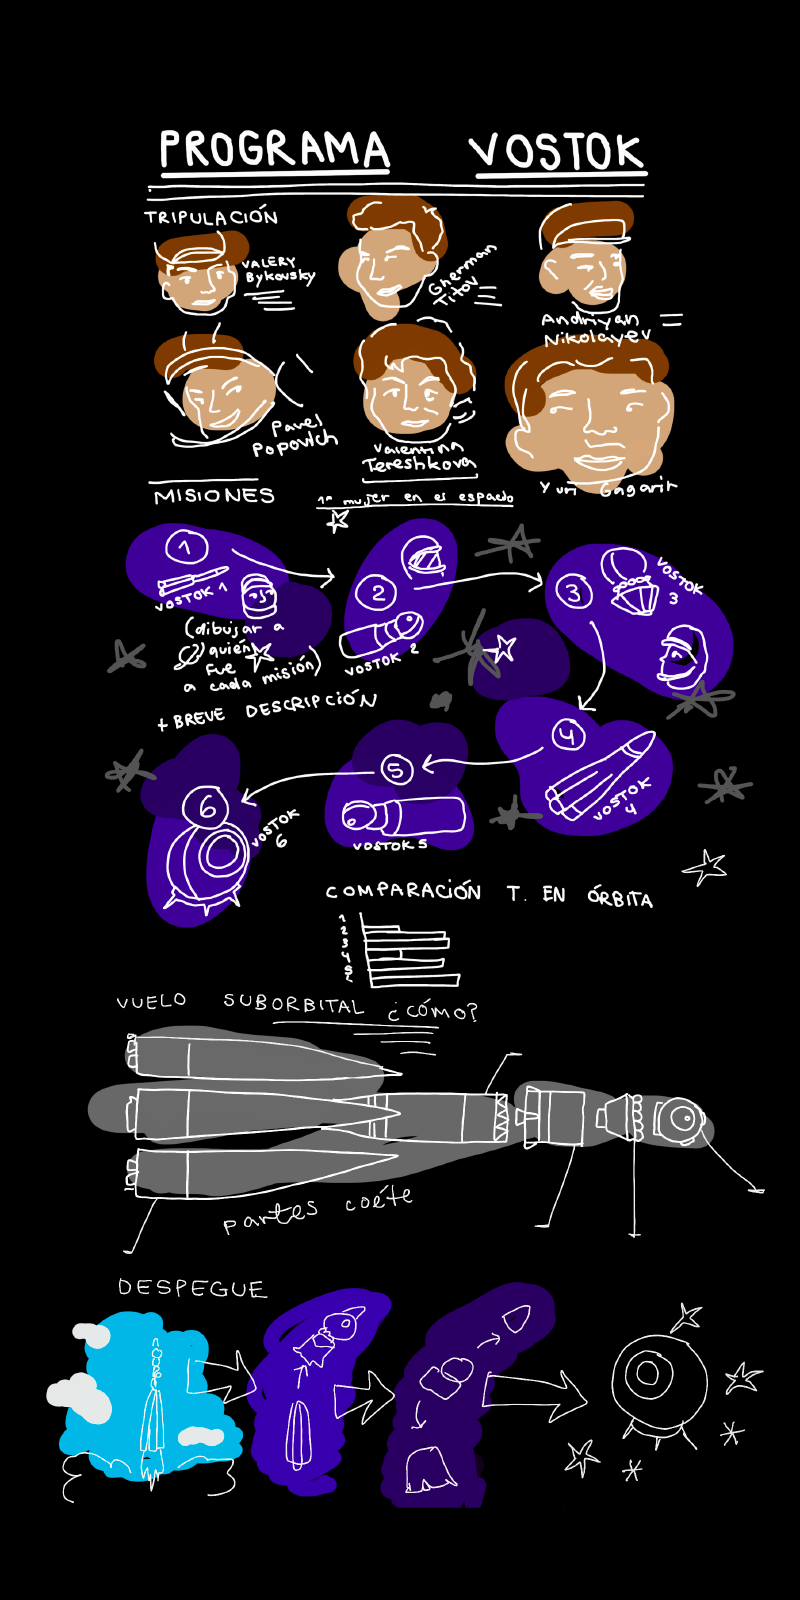 PROGRAMA VOSTOK
TRIPULACIÓN
VALERY
Bykovsky
Gherman
Titov
Andriyan
Nikolayev
Pavel
Popovich
Valentina
Tereshkova
1ª mujer en el espacio
Yuri Gagarin
MISIONES
1
VOSTOK 1
(dibujar a
quién
fue
a cada misión)
+ BREVE DESCRIPCIÓN
2
VOSTOK 2
3
VOSTOK
3
4
VOSTOK
4
5
VOSTOK 5
6
VOSTOK
6
COMPARACIÓN T. EN ÓRBITA
1
2
3
4
5
VUELO SUBORBITAL ¿CÓMO?
partes coéte
DESPEGUE